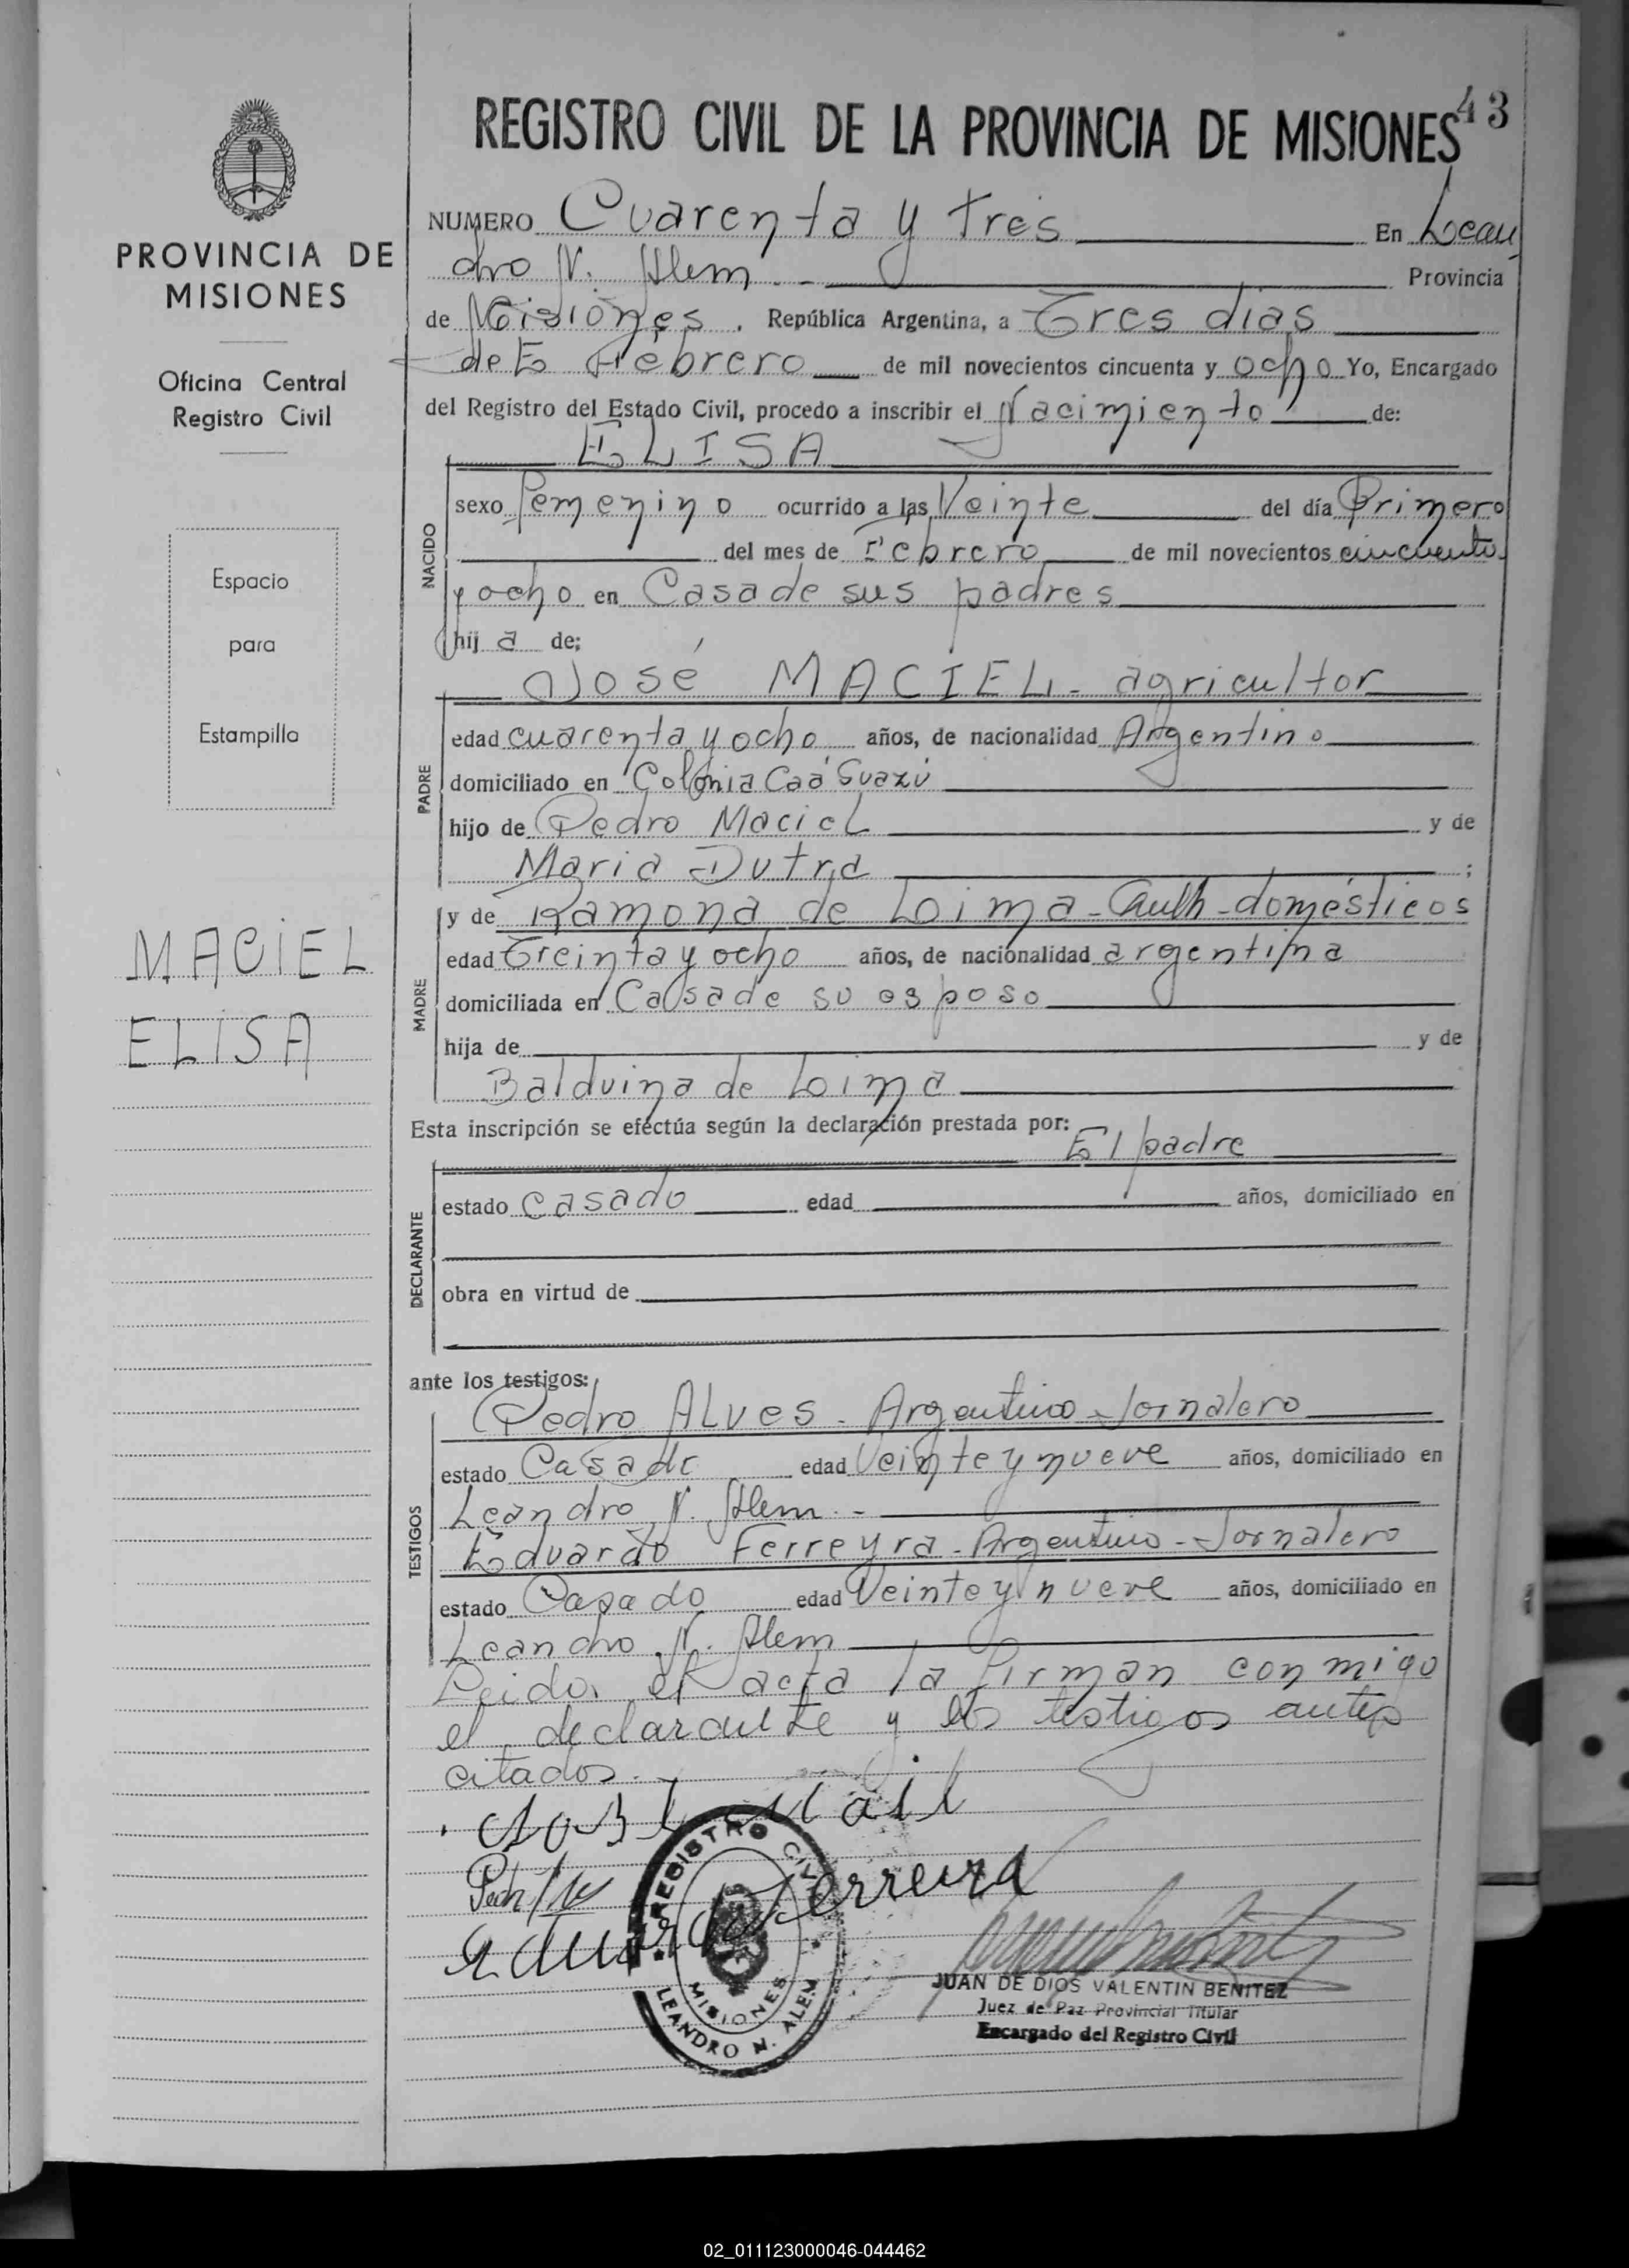 REGISTRO CIVIL DE LA PROVINCIA DE MISIONES 43
PROVINCIA DE
MISIONES
Oficina Central
Registro Civil
Espacio
para
Estampilla
MACIEL
ELISA
NUMERO Cuarenta y Tres En Lean
dro N. Alem. - Provincia
de Misiones, República Argentina, a Tres dias
de Febrero de mil novecientos cincuenta y ocho Yo, Encargado
del Registro del Estado Civil, procedo a inscribir el Nacimiento de:
ELISA
NACIDO
sexo femenino ocurrido a las Veinte del día Primero
del mes de Febrero de mil novecientos cincuenta
y ocho en Casa de sus padres
hij a de:
José MACIEL - agricultor
PADRE
edad cuarenta y ocho años, de nacionalidad Argentino
domiciliado en Colonia Caá Guazú
hijo de Pedro Maciel y de
Maria Dutra ;
MADRE
y de Ramona de Loima - domésticos
edad Treinta y ocho años, de nacionalidad argentina
domiciliada en Casa de su esposo
hija de y de
Balduina de Loima
Esta inscripción se efectúa según la declaración prestada por:
El padre
DECLARANTE
estado casado edad años, domiciliado en
obra en virtud de
ante los testigos:
TESTIGOS
Pedro ALVES - Argentino - Jornalero
estado Casado edad Veinte y nueve años, domiciliado en
Leandro N. Alem. -
Eduardo Ferreyra - Argentino - Jornalero
estado Casado edad Veinte y nueve años, domiciliado en
Leandro N. Alem
Leida el acta la firman conmigo
el declarante y los testigos antes
citados.
Eduardo Ferreira
REGISTRO CIVIL
MISIONES
LEANDRO N. ALEM
JUAN DE DIOS VALENTIN BENITEZ
Juez de Paz Provincial Titular
Encargado del Registro Civil
02_011123000046-044462